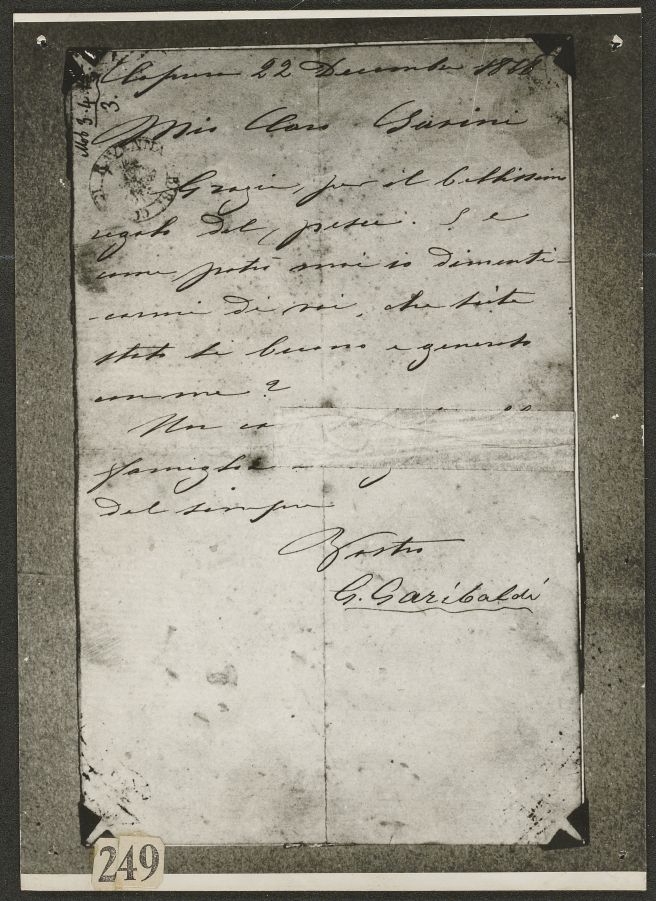 Caprera 22 Decembre 18
Mio Caro
Grazie, per il bellissimo
regalo del pesce. E
come potrò mai io dimenti-
-carmi di voi, che siete
stato sì buono e generoso
con me?
Un ca
famiglia
del sempre
Vostro
G. Garibaldi
249